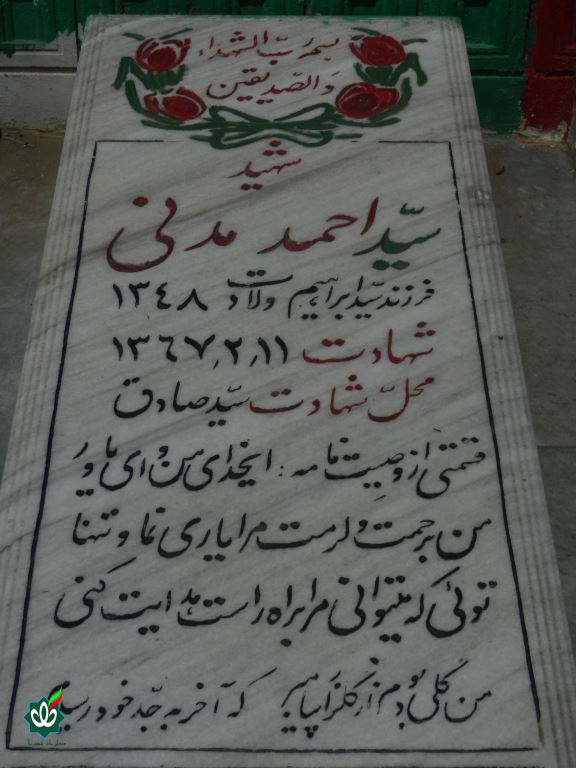 بسم ربّ الشهداء
والصّدیقین
شهید
سیّد احمد مدنی
فرزند سیّد ابراهیم ولادت ۱۳۴۸
شهادت ۱۳۶۷,۲,۱۱
محلّ شهادت سیّد صادق
قسمتی از وصیت نامه: ایخدای من و ای یاور
من برحمت و کرمت مرا یاری نما و تنها
توئی که میتوانی مرا براه راست هدایت کنی
من گلی بودم از گلزار پیامبر که آخر به جدّ خود